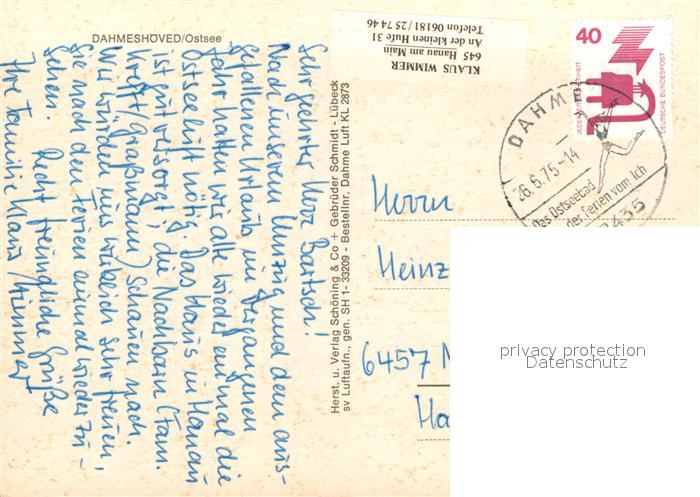 DAHMESHÖVED/Ostsee
Sehr geehrter Herr Bartsch!
Nach unserem Umzug und dem aus-
gefallenen Urlaub im vergangenen
Jahr hatten wir alle wieder einmal die
Ostseeluft nötig. Das Haus in Hanau
ist gut versorgt; die Nachbarn (Fam.
Krefft/Graßmann) schauen nach.
Wir würden uns wirklich sehr freuen,
Sie nach den Ferien einmal wieder zu-
sehen. Recht freundliche Grüße
Ihre Familie Klaus Wimmer
Herst. u. Verlag Schöning & Co + Gebrüder Schmidt - Lübeck
sv Luftaufn., gen. SH 1- 33209 - Bestellnr. Dahme Luft KL 2873
KLAUS WIMMER
645 Hanau am Main
An der kleinen Hufe 31
Telefon 06181 / 25 74 46
40
JEDERZEIT SICHERHEIT
DEUTSCHE BUNDESPOST
DAHM
26.6.75-14
Das Ostseebad
der Ferien vom Ich
2435
Herrn
Heinz
6457
Ha
privacy protection
Datenschutz